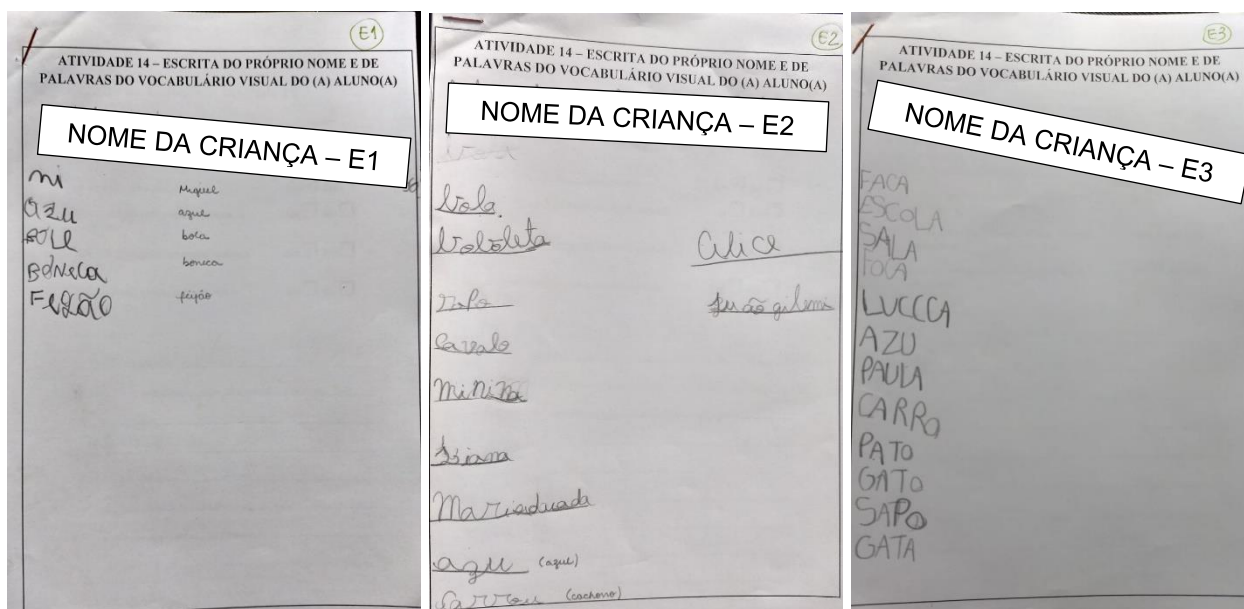 E1
ATIVIDADE 14 – ESCRITA DO PRÓPRIO NOME E DE
PALAVRAS DO VOCABULÁRIO VISUAL DO (A) ALUNO(A)
NOME DA CRIANÇA – E1
mi Miguel
azu azul
BOLE bola
BONECA boneca
feijão
E2
ATIVIDADE 14 – ESCRITA DO PRÓPRIO NOME E DE
PALAVRAS DO VOCABULÁRIO VISUAL DO (A) ALUNO(A)
NOME DA CRIANÇA – E2
bola
boboleta alice
cavalo
minina
azu (azul)
(cachorro)
E3
ATIVIDADE 14 – ESCRITA DO PRÓPRIO NOME E DE
PALAVRAS DO VOCABULÁRIO VISUAL DO (A) ALUNO(A)
NOME DA CRIANÇA – E3
FACA
ESCOLA
SALA
FOCA
LUCCCA
AZU
PAULA
CARRO
PATO
GATO
SAPO
GATA